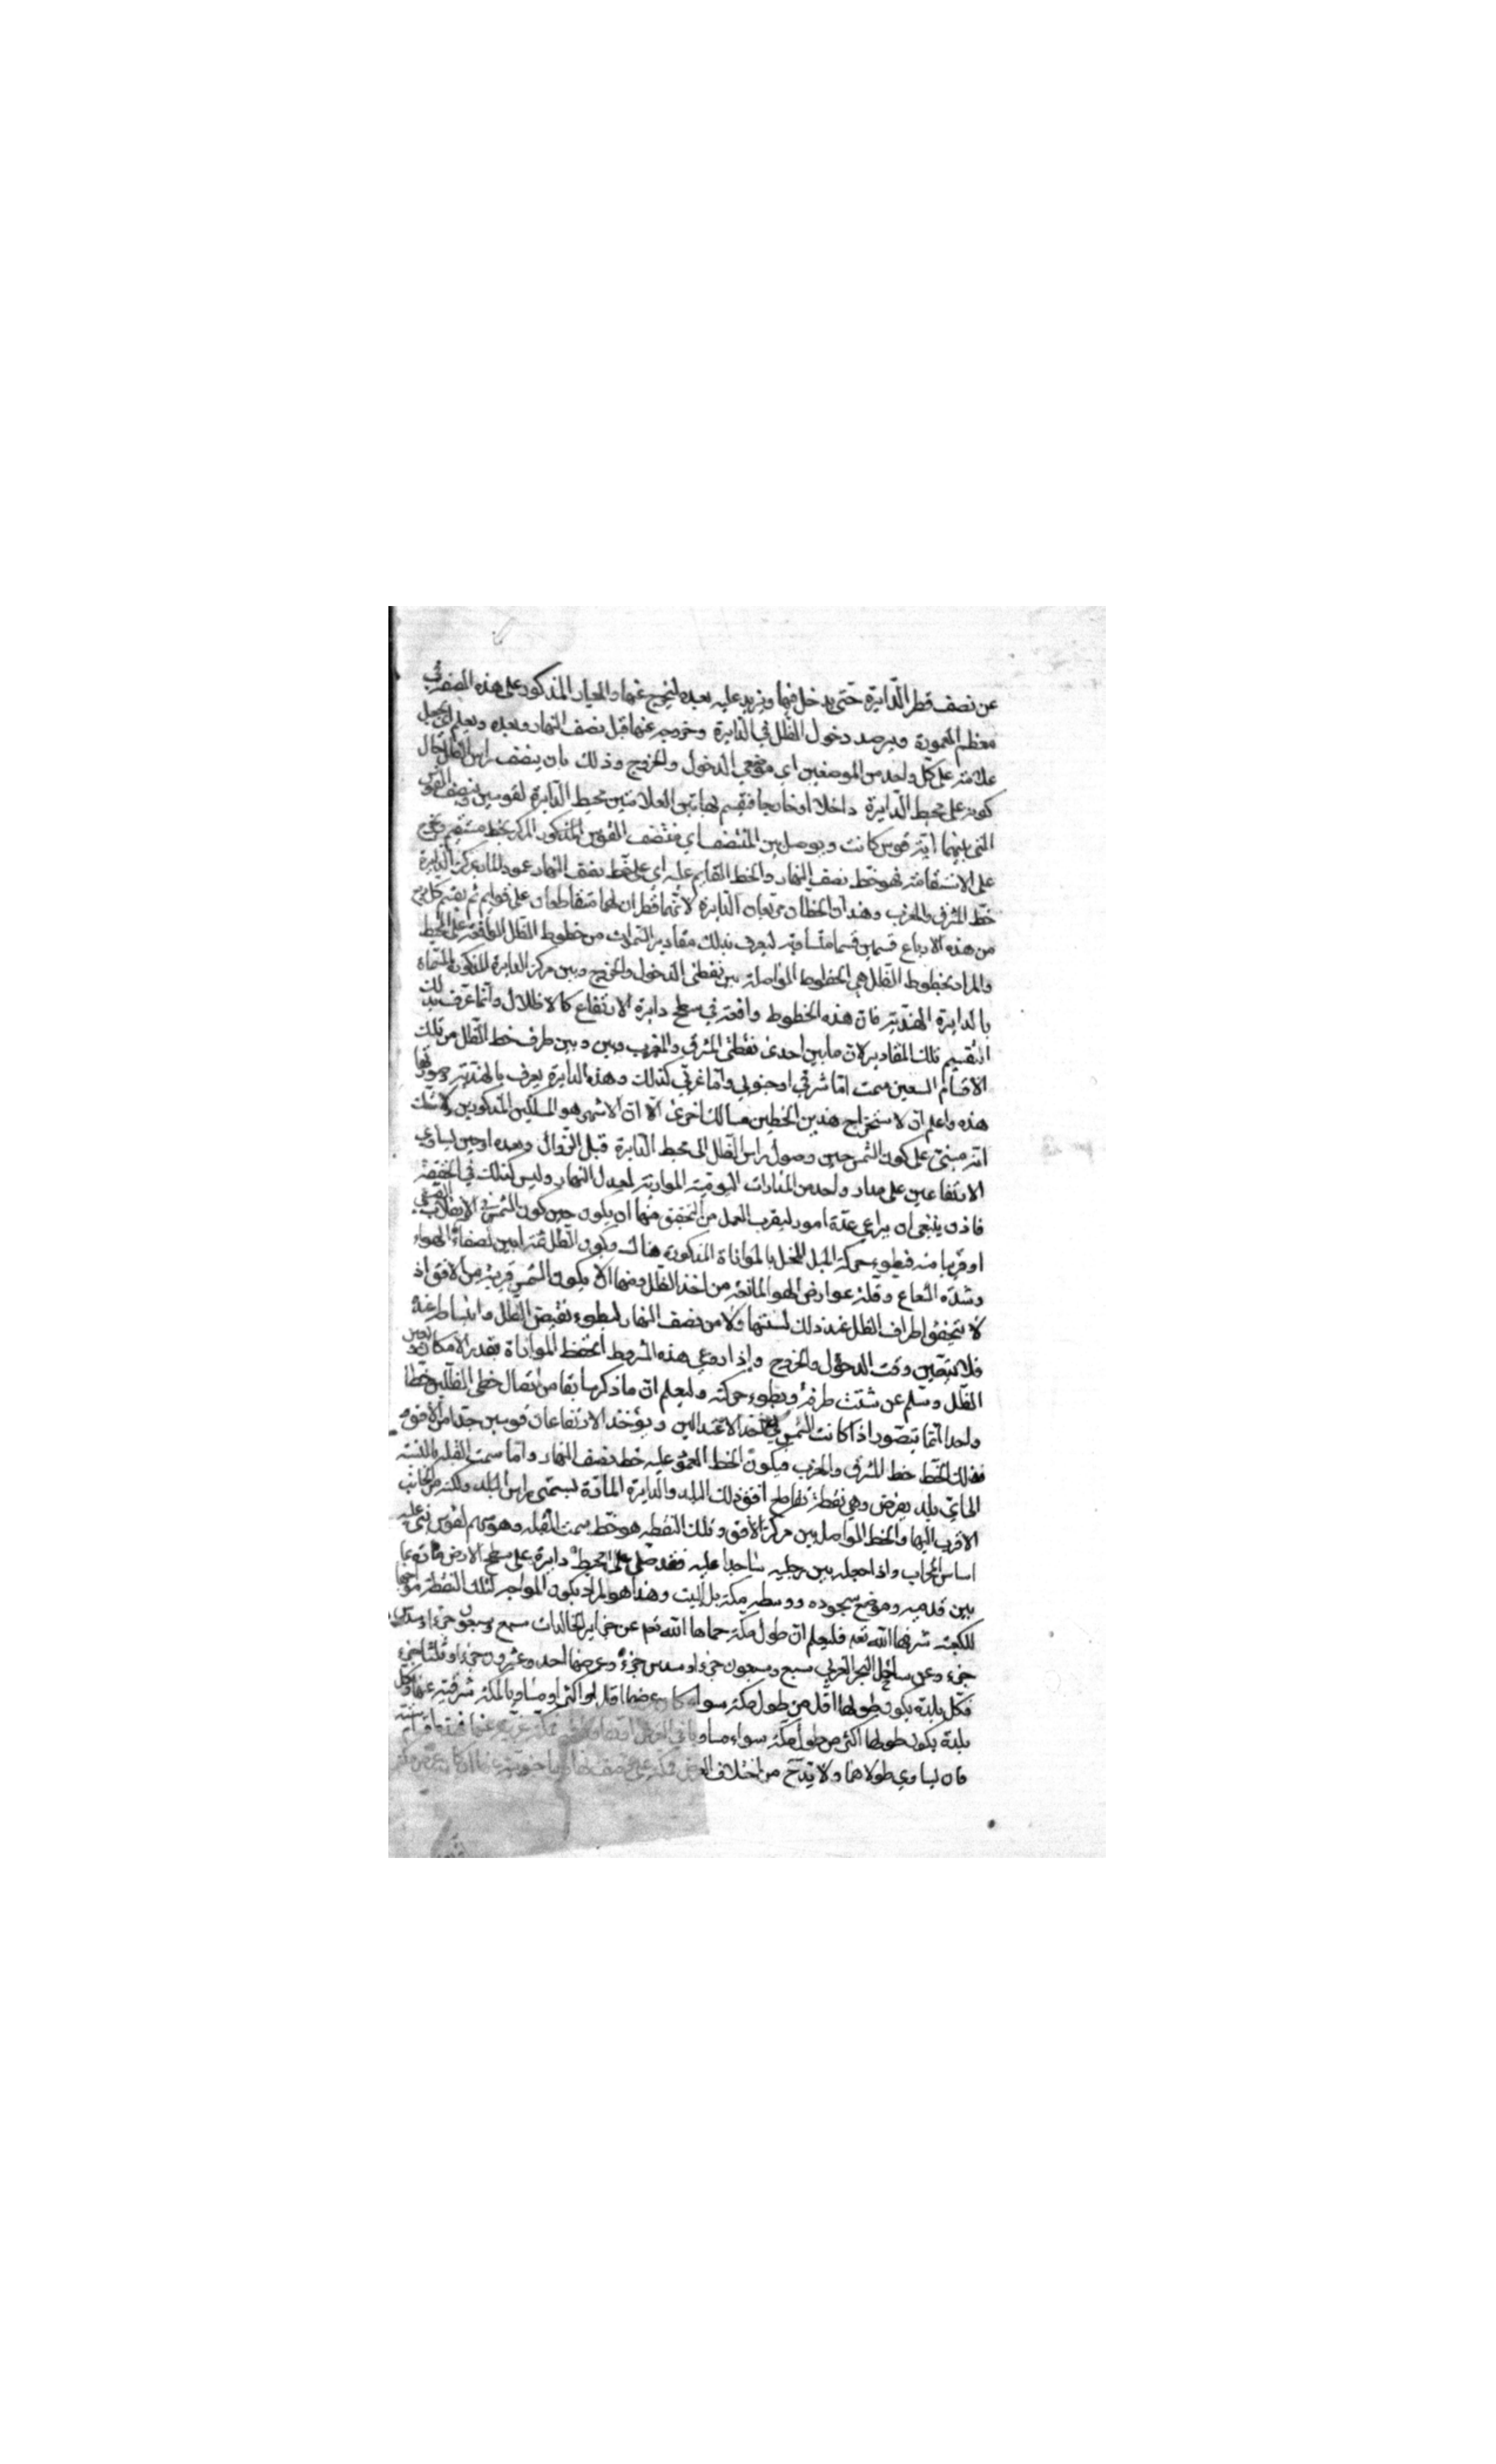 عن نصف قطر الدّايرة حتّى يدخل فيها ويزيد عليه بعده ليخرج عنها والمعيار المذكور على هذه الصفة في
معظم المعمورة ويرصد دخول الظل في الدايرة وخروجه عنها قبل نصف النهار وبعده ويعلم اي يجعل
علامة على كل واحد من الموضعين اي موضعي الدخول والخروج وذلك بان ينصف راس الظل حال
كونه على محيط الدّايرة داخلا او خارجا فيقسم بهاتين العلامتين محيط الدّايرة لقوسين وينصف القوس
التي بينهما ايّة قوس كانت ويوصل بين المنتصف اي منتصف القوس المذكور المركز بخط مستقيم ويخرج
على الاستقامة فهو خطّ نصف النهار والخط القايم عليه اي على خط نصف النهار عمودا مارا بمركز الدّايرة
خطّ المشرق والمغرب وهذان الخطان يربعان الدّايرة لانّهما قطران لها متقاطعان على قوايم ثم يقسم كل ربع
من هذه الارباع تسعين قسما متساوية ليعرف بذلك مقادير السّموات من خطوط الظل الواقعة على المحيط
والمراد بخطوط الظل هي الخطوط الواصلة بين نقطتي الدخول والخروج وبين مركز الدايرة المذكورة المسماة
بالدايرة الهنديّة فان هذه الخطوط واقعة في سطح دايرة الارتفاع كالاظلال وانّما عرف بذلك
التقسيم تلك المقادير لان ما بين احدى نقطتي المشرق والمغرب وبين طرف خط الظل من تلك
الاقسام التسعين سمت امّا شرقي او جنوبي وامّا غربي كذلك وهذه الدّايرة يعرف بالهنديّة وصورتها
هذه واعلم ان لاستخراج هذين الخطين مسالك اخرى الّا انّ الاشهر هو المسلكين المذكورين ولا شك
انّه مبنيّ على كون الشمس حين وصول راس الظل الى محيط الدّايرة قبل الزّوال وبعده او حين تساوي
الارتفاعين على مدار واحد من المدارات اليوميّة الموازية لمعدل النهار وليس كذلك في الحقيقة
فاذن ينبغي ان يراعي عدّة امور ليقرب العمل من التحقق منها ان يكون حين كون الشمس في الانقلاب الصيفي
او قريبا منه فبطوء حركة الميل المخل بالموازاة المذكورة هناك ويكون الظل ثمة ابين لصفاء الهواء
وشدّة الشعاع وقلة عوارض الهواء المانعة من اخذ الظل ومنها الّا يكون الشمس قريبة من الافق اذ
لا يتحقق اطراف الظل عند ذلك لتشتتها ولا من نصف النهار لبطوء تقبض الظل وانبساطه عنده
فلا يتعيّن وقت الدخول والخروج واذا روعي هذه الشروط انحفظ الموازاة بقدر الامكان وتعين
الظل وسلم عن تشتت طرفه وبطوء حركته وليعلم ان ما ذكر سابقا من اتصال خطي الظلين خطا
واحدا انّما يتصوّر اذا كانت الشمس في احد الاعتدالين ويؤخذ الارتفاعان قوسين جدا من الافق و
فذلك الخط خط المشرق والمغرب فيكون الخط العمود عليه خط نصف النهار وامّا سمت القبلة بالنسبة
الى اي بلد يفرض وهي نقطة تقاطع افق ذلك البلد والدايرة المارّة بسمتي راس البلد ومكّة من الجانب
الاقرب اليها والخط الواصل بين مركز الافق وتلك النقطة هو خط سمت القبلة وهو سهم لقوس نبي عليه
اساس المحراب واذا جعله بين رجليه ساجدا عليه فقد صلّى على محيط دايرة على سطح الارض مارة بما
بين قدميه وموضع سجوده ووسطه مكة بل البيت وهذا هو المراد بكون المواجه لتلك النقطة مواجها
للكعبة شرفها الله تعم فليعلم انّ طول مكة حماها الله تعم عن جزاير الخالدات سبع وسبعون جزءا وسدس
جزء وعن ساحل البحر الغربي سبع وستون جزءا وسدس جزء وعرضها احد وعشرون جزءا وثلثا جزء
فكل بلدة يكون طولها اقل من طول مكة سواء كان عرضها اقل او اكثر او مساويا لمكة شرقية عنها وكل
بلدة يكون طولها اكثر من طول مكة سواء مساويا في العرض فمكة غربية عنها
فان تساوى طولاهما ولا بدّ ح من اختلاف العرض فمكة على نصف نهارها جنوبية عنها ان كان